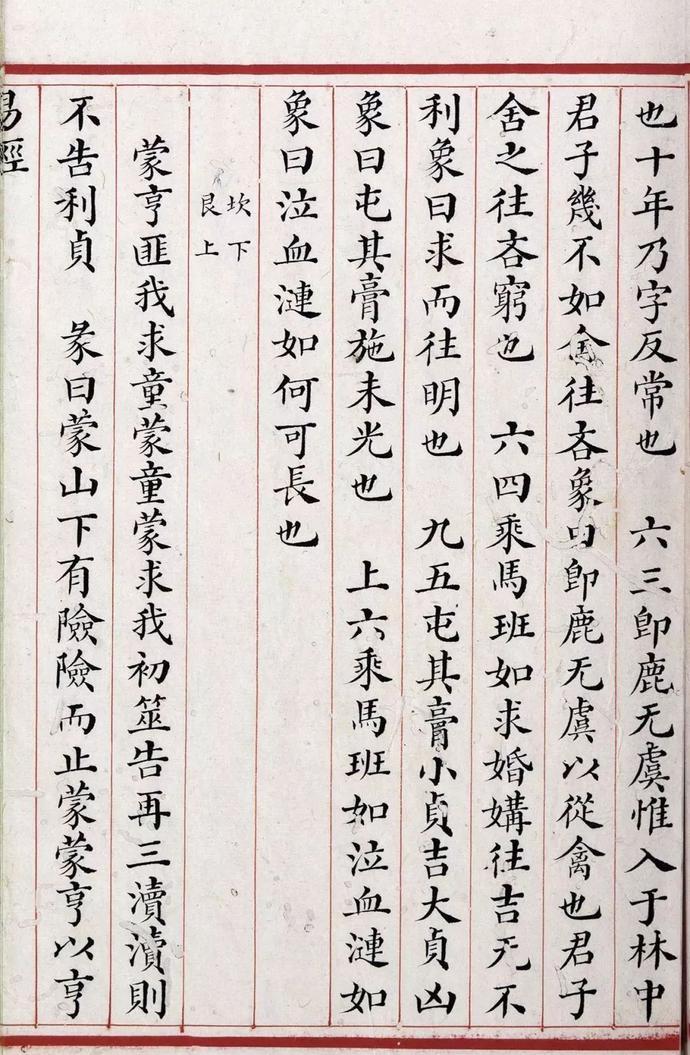 也十年乃字反常也　六三卽鹿无虞惟入于林中
君子幾不如舍往吝象曰卽鹿无虞以從禽也君子
舍之往吝窮也　六四乘馬班如求婚媾往吉无不
利象曰求而往明也　九五屯其膏小貞吉大貞凶
象曰屯其膏施未光也　上六乘馬班如泣血漣如
象曰泣血漣如何可長也
坎下
艮上
蒙亨匪我求童蒙童蒙求我初筮告再三瀆瀆則
不告利貞　彖曰蒙山下有險險而止蒙蒙亨以亨
易經